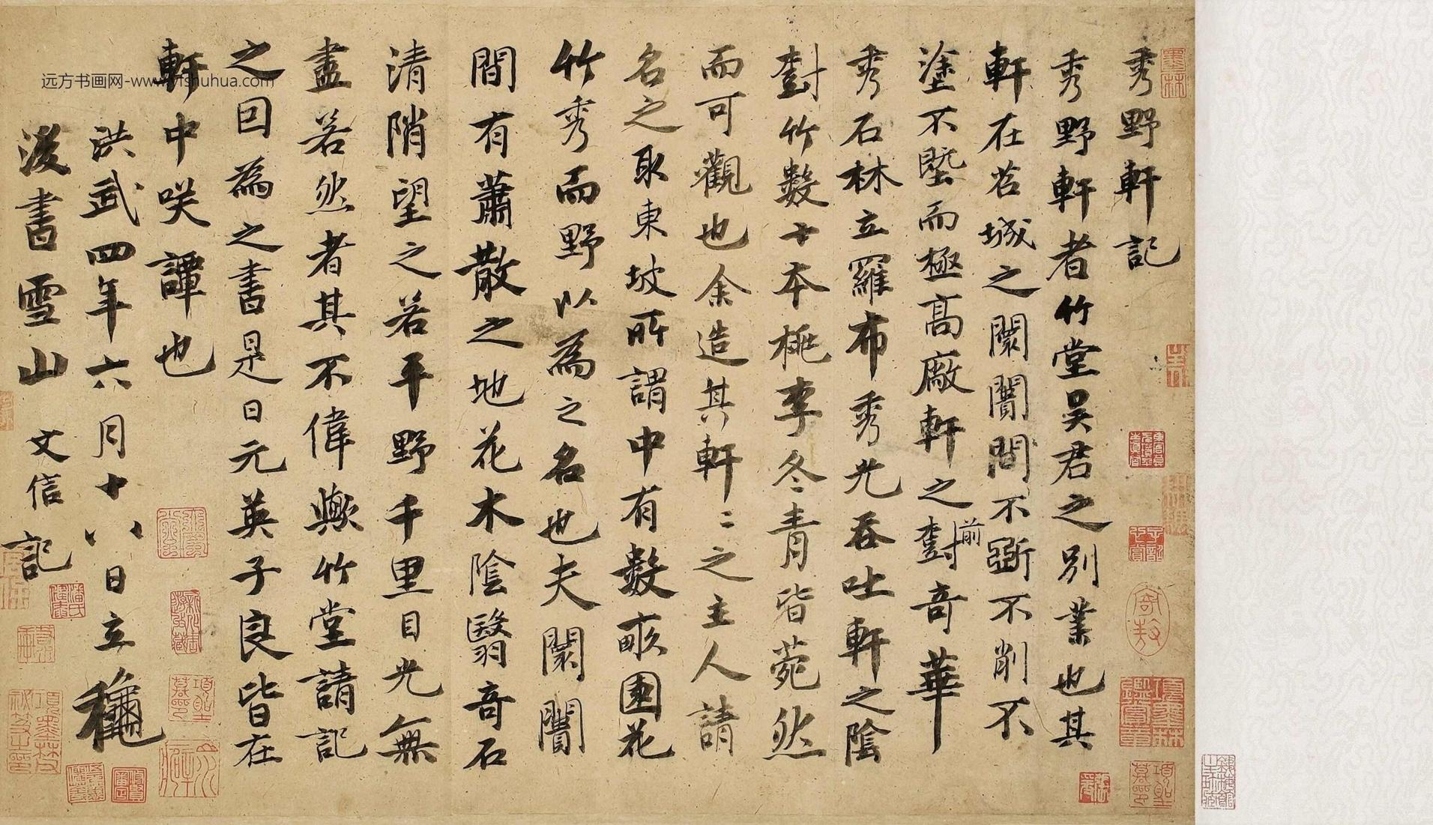 秀野軒記
秀野軒者竹堂吴君之别業也其
軒在苕城之闤闠間不斲不削不
塗不墍而極高廠軒之前對奇華
秀石林立羅布秀光吞吐軒之陰
對竹數十本桃李冬青皆菀然
而可觀也余造其軒〻之主人請
名之取東坡所謂中有數畝園花
竹秀而野以為之名也夫闤闠
間有蕭散之地花木陰翳奇石
清陗望之若平野千里目光無
盡若然者其不偉歟竹堂請記
之因為之書是日元英子良皆在
軒中咲譚也
洪武四年六月十八日立穐
後書雪山 文信記
远方书画网-www.yfshuhua.com